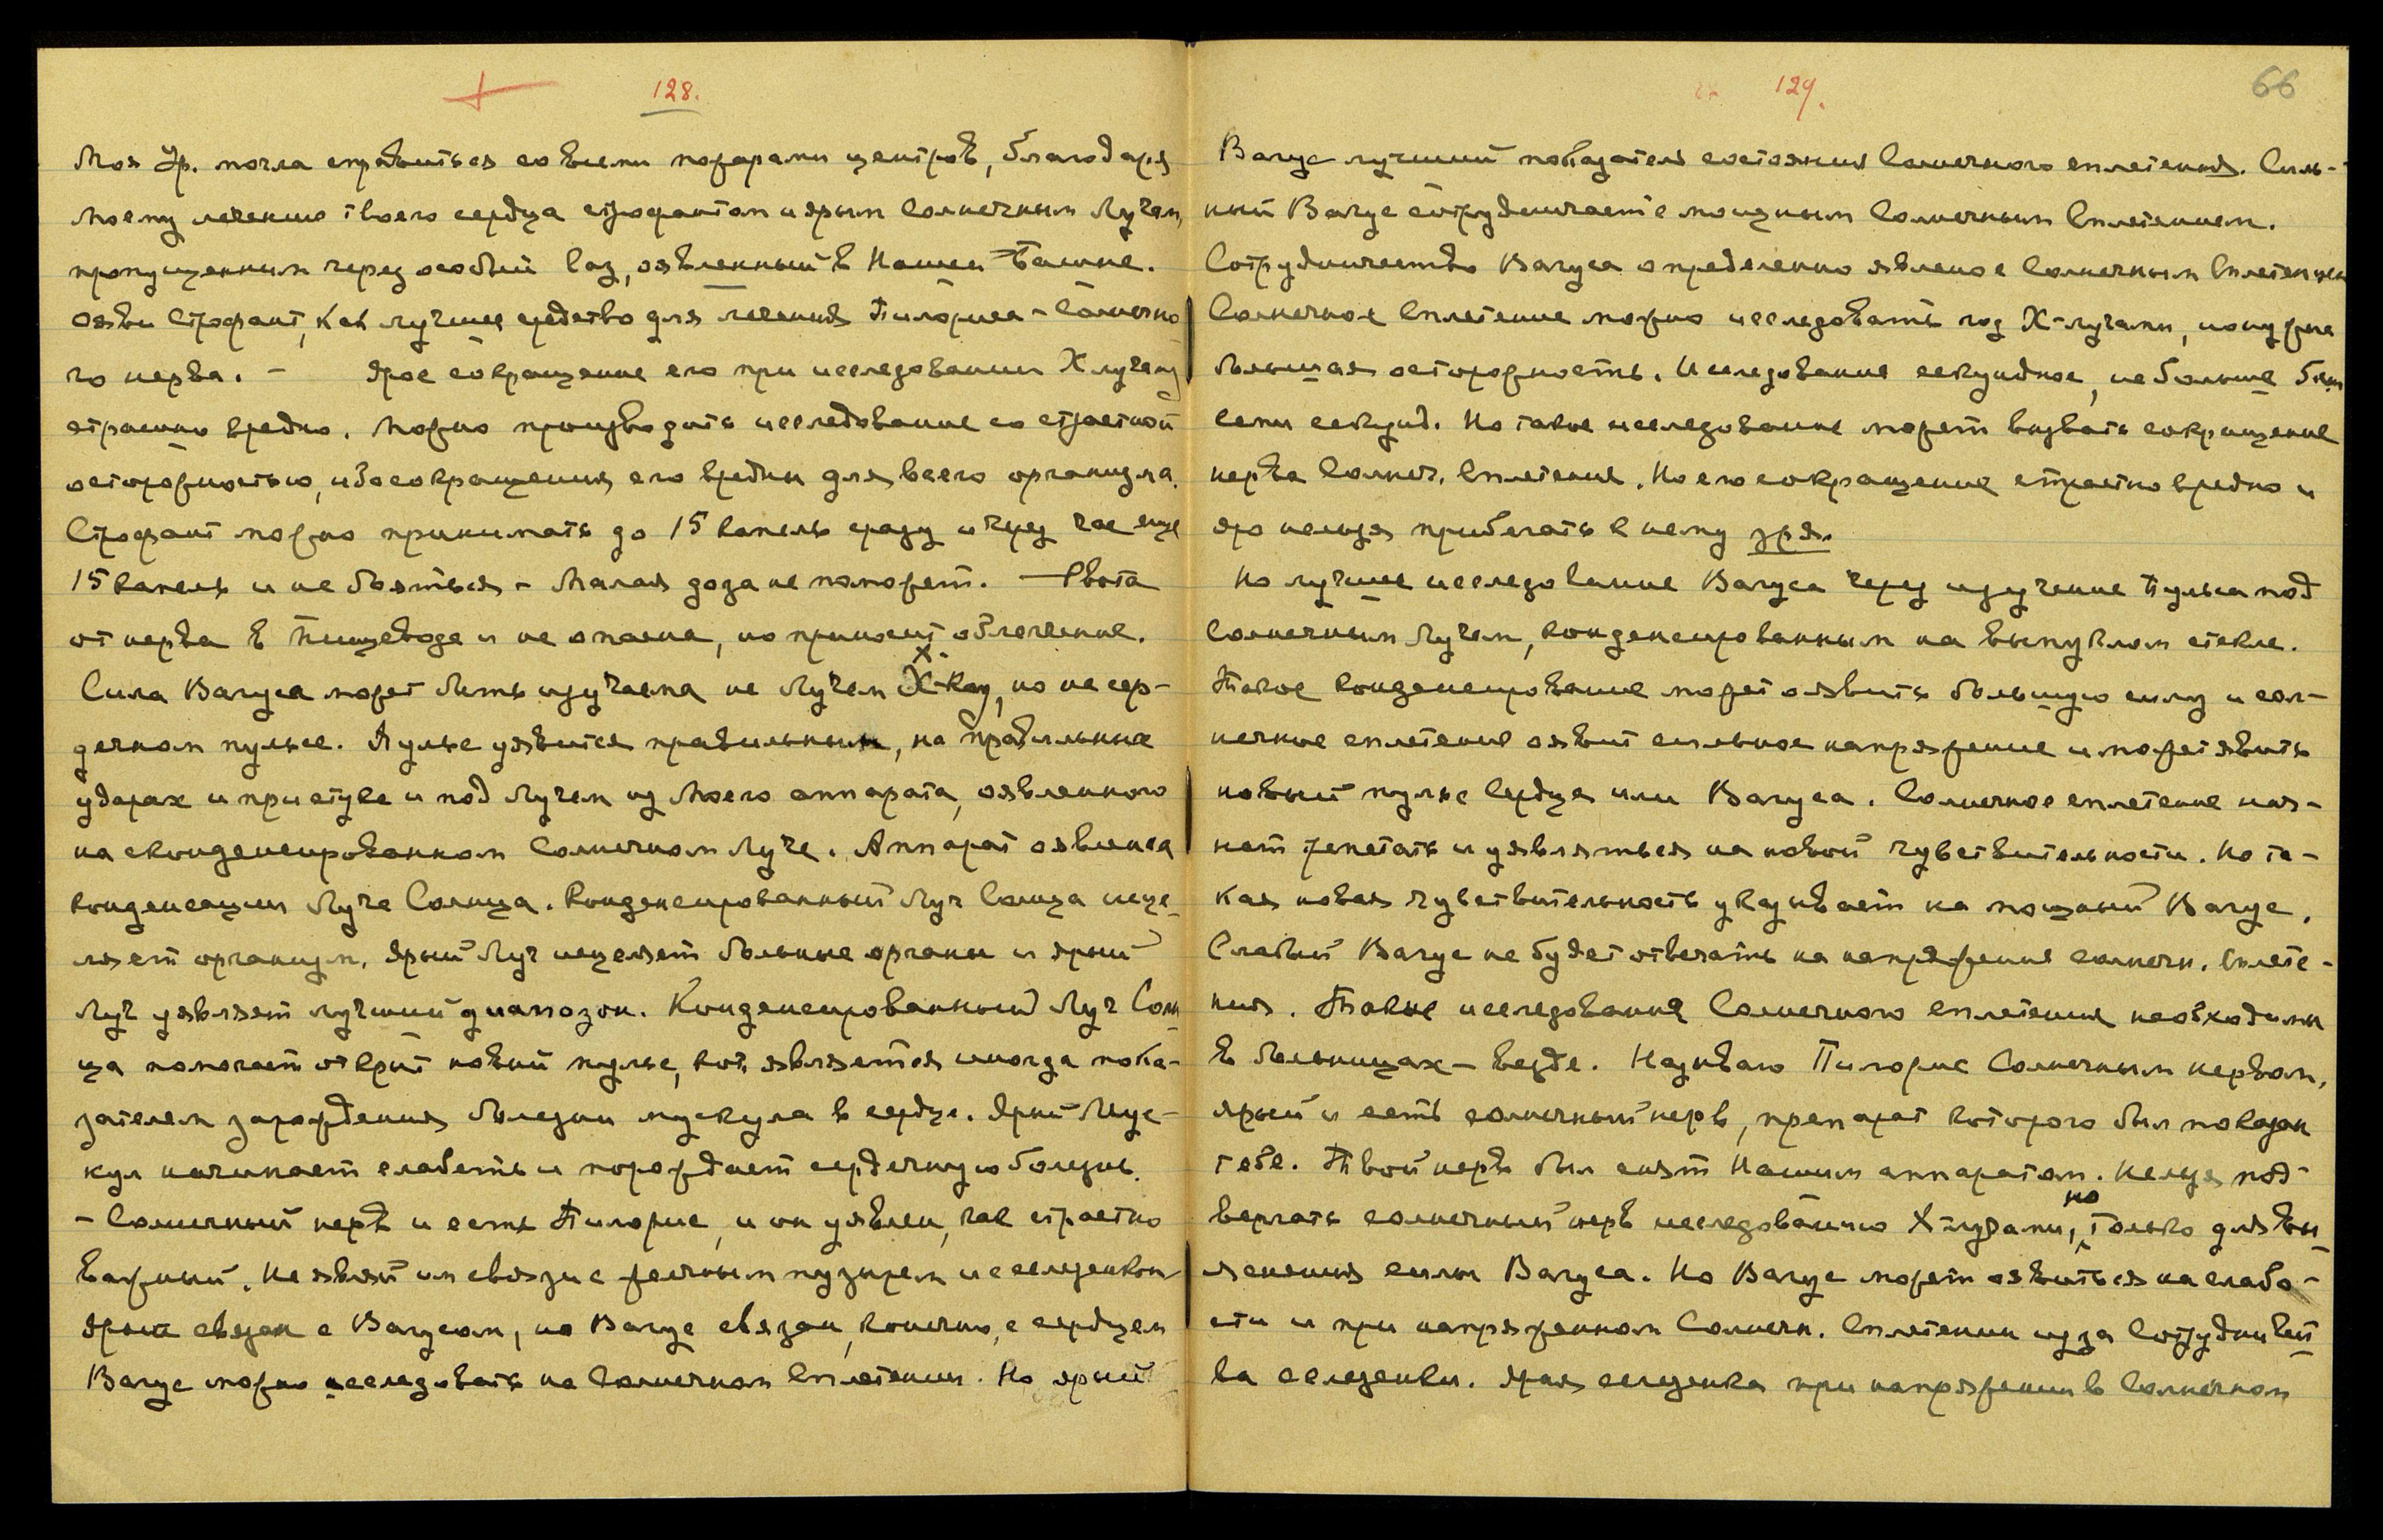 128.
Моя Ур. могла справиться со всеми пожарами центров, благодаря
Моему лечению твоего сердца строфантом и ярым Солнечным Лучем,
пропущенным через особый Газ, оявленный в Нашей Башне.
Ояви Строфант, как лучшее средство для лечения Пилориса - Солнечно-
го нерва. - Ярое сокращение его при исследовании Х лучем
страшно вредно. Можно производить исследование со страстной
осторожностью, ибо сокращения его вредны для всего организма.
Строфант можно принимать до 15 капель сразу и через час еще
15 капель и не бояться - Малая доза не поможет. - Рвота
от нерва в Пищеводе и не опасна, но приносит облегчение.
Сила Вагуса может быть изучаема не Лучем Х-Ray, но на сер-
дечном пульсе. Пульс уявится правильным, на правильных
ударах и при стуке и под Лучем из Моего аппарата, оявленного
на сконденсированном Солнечном Луче. Аппарат оявился
конденсации Луча Солнца. Конденсированный Луч Солнца исце-
ляет организм. Ярый Луч исцеляет больные органы и ярый
Луч уявляет лучший диапазон. Конденсированный Луч Солн
ца помогает открыть новый пульс, кот. является иногда пока-
зателем зарождения болезни мускула в сердце. Ярый Мус-
кул начинает слабеть и порождает сердечную болезнь.
- Солнечный нерв и есть Пилорис, и он уявлен, как страстно
важный. Не являй им связи с желчным пузырем и с селезенкой
Ярый связан с Вагусом, но Вагус связан, конечно, с сердцем
Вагус можно исследовать на Солнечном Сплетении. Но ярый
129.
66
Вагус лучший показатель состояния Солнечного сплетения. Силь-
ный Вагус сотрудничает с мощным Солнечным Сплетением.
Сотрудничество Вагуса определенно явлено с Солнечным Сплетением
Солнечное Сплетение можно исследовать под Х-лучами, но нужна
большая осторожность. Исследование секундное, не больше
семи секунд. Но такое исследование может вызвать сокращение
нерва Солнеч. Сплетения. Но его сокращение страстно вредно и
яро нельзя прибегать к нему зря.
Но лучшее исследование Вагуса через изучение Пульса под
Солнечным Лучем, конденсированным на выпуклом стекле.
Такое конденсирование может оявить большую силу и сол-
нечное сплетение оявит сильное напряжение и может явить
новый пульс Сердца или Вагуса. Солнечное сплетение нач-
нет трепетать и уявляться на новой чувствительности. Но та-
кая новая чувствительность указывает на мощный Вагус.
Слабый Вагус не будет отвечать на напряжение солнечн. Сплете-
ния. Такие исследования Солнечного сплетения необходимы
в больницах - везде. Называю Пилорис Солнечным нервом,
ярый и есть солнечный нерв, препарат которого был показан
тебе. Твой нерв был снят Нашим аппаратом. Нельзя под-
вергать солнечный нерв исследованию Х-лучами, но только для вы-
яснения силы Вагуса. Но Вагус может оявиться на слабо-
сти и при напряженном Солнечн. Сплетении из за Сотрудничест
ва селезенки. Ярая селезенка при напряжении в Солнечном